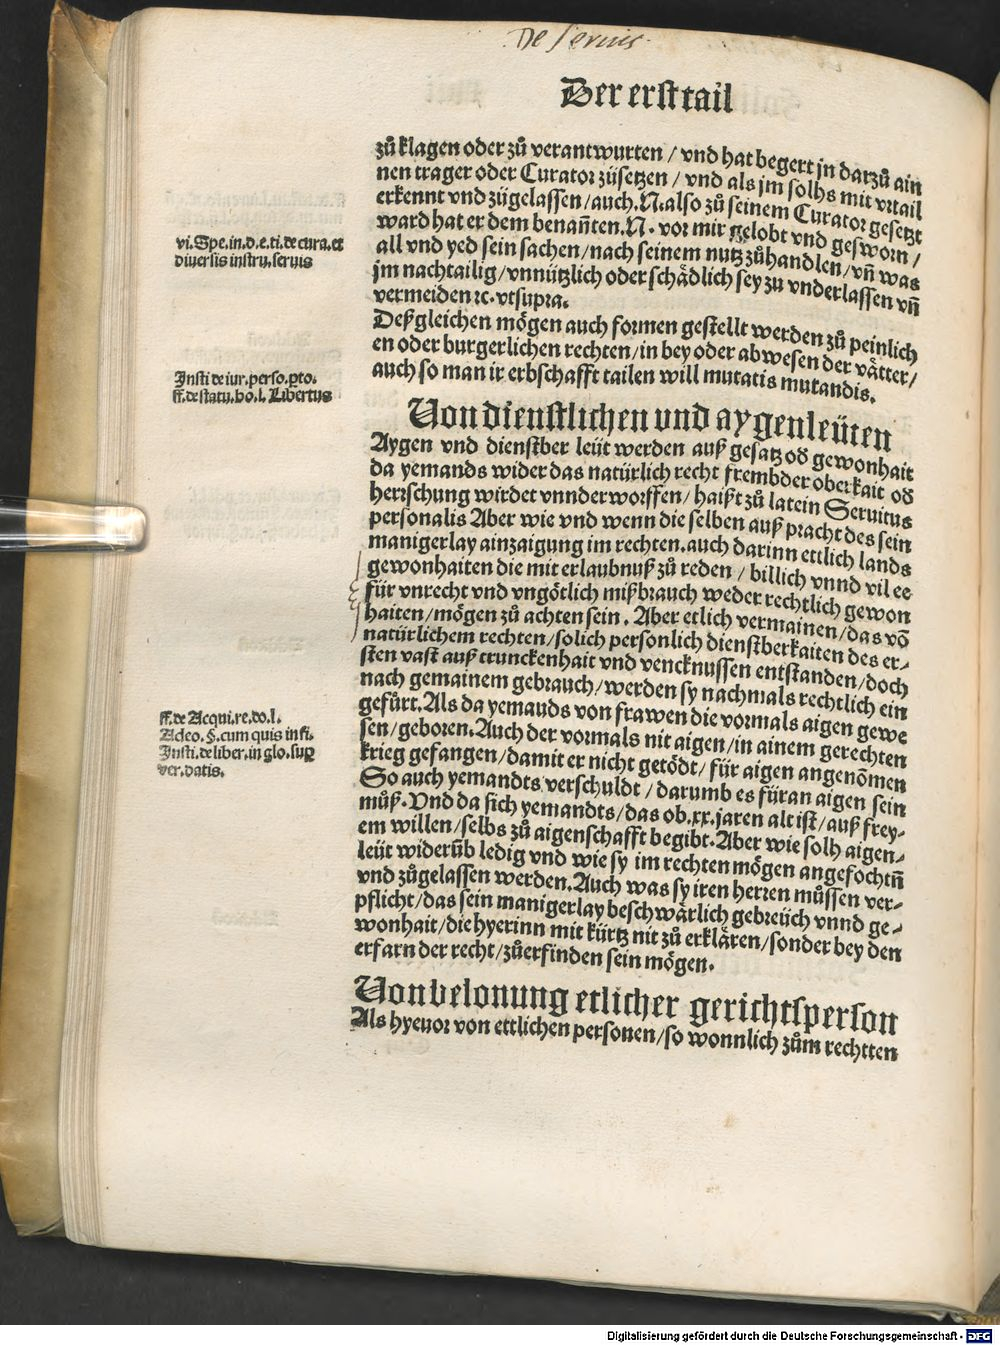 De seruis.
Der erst tail
zů klagen oder zů verantwurten / vnd hat begert jn darzů ain
nen trager oder Curator zůsetzen / vnd als jm solhs mit vrtail
erkennt vnd zůgelassen / auch .N. also zů seinem Curator gesetzt
ward hat er dem benañten .N. vor mir gelobt vnd gesworn /
all vnd yed sein sachen / nach seinem nutz zůhandlen / vñ was
jm nachtailig / vnnützlich oder schådlich sey zu vnderlassen vñ
vermeiden ꝛc. vtsupra.
vi. Spe. in. d. e. ti. de cura. et
diuersis instru. seruis
Deßgleichen mögen auch formen gestellt werden zů peinlich
en oder burgerlichen rechten / in bey oder abwesen der våtter /
auch so man ir erbschafft tailen will mutatis mutandis.
Insti de iur. perso. ꝑto.
ff. de statu. ho. l. Libertus
Von dienstlichen und aygenleüten
Aygen vnd dienstber leüt werden auß gesatz od gewonhait
da yemands wider das natürlich recht frembder oberkait od
herrschung wirdet vnnderworffen / haißt zů latein Seruitus
personalis Aber wie vnd wenn die selben auß pracht des sein
manigerlay ainzaigung im rechten. auch darinn ettlich lands
gewonhaiten die mit erlaubnuß zů reden / billich vnnd vil ee
für vnrecht vnd vngötlich mißbrauch weder rechtlich gewon
haiten / mögen zů achten sein. Aber etlich vermainen / das vō
natürlichem rechten / solich personlich dienstberkaiten des er⸗
sten vast auß trunckenhait vnd vencknussen entstanden / doch
nach gemainem gebrauch / werden sy nachmals rechtlich ein
gefůrt. Als da yemauds von frawen die vormals aigen gewe
sen / geboren. Auch der vormals nit aigen / in ainem gerechten
krieg gefangen / damit er nicht getödt / für aigen angenōmen
So auch yemandts verschuldt / darumb es füran aigen sein
můß. Vnd da sich yemandts / das ob .xx. jaren alt ist / auß frey⸗
em willen / selbs zů aigenschafft begibt. Aber wie solh aigen⸗
leüt widerūb ledig vnd wie sy im rechten mögen angefochtñ
vnd zůgelassen werden. Auch was sy iren herren můssen ver⸗
pflicht / das sein manigerlay beschwårlich gebreüch vnnd ge⸗
wonhait / die hyerinn mit kürtz nit zů erklåren / sonder bey den
erfarn der recht / zůerfinden sein mögen.
ff. de Acqui. re. do. l.
Adeo. §. cum quis in fi.
Insti. de liber. in glo. suꝑ
ver. datis.
Von belonung etlicher gerichtsperson
Als hyeuor von ettlichen personen / so wonnlich zům rechtten
Digitalisierung gefördert durch die Deutsche Forschungsgemeinschaft - DFG